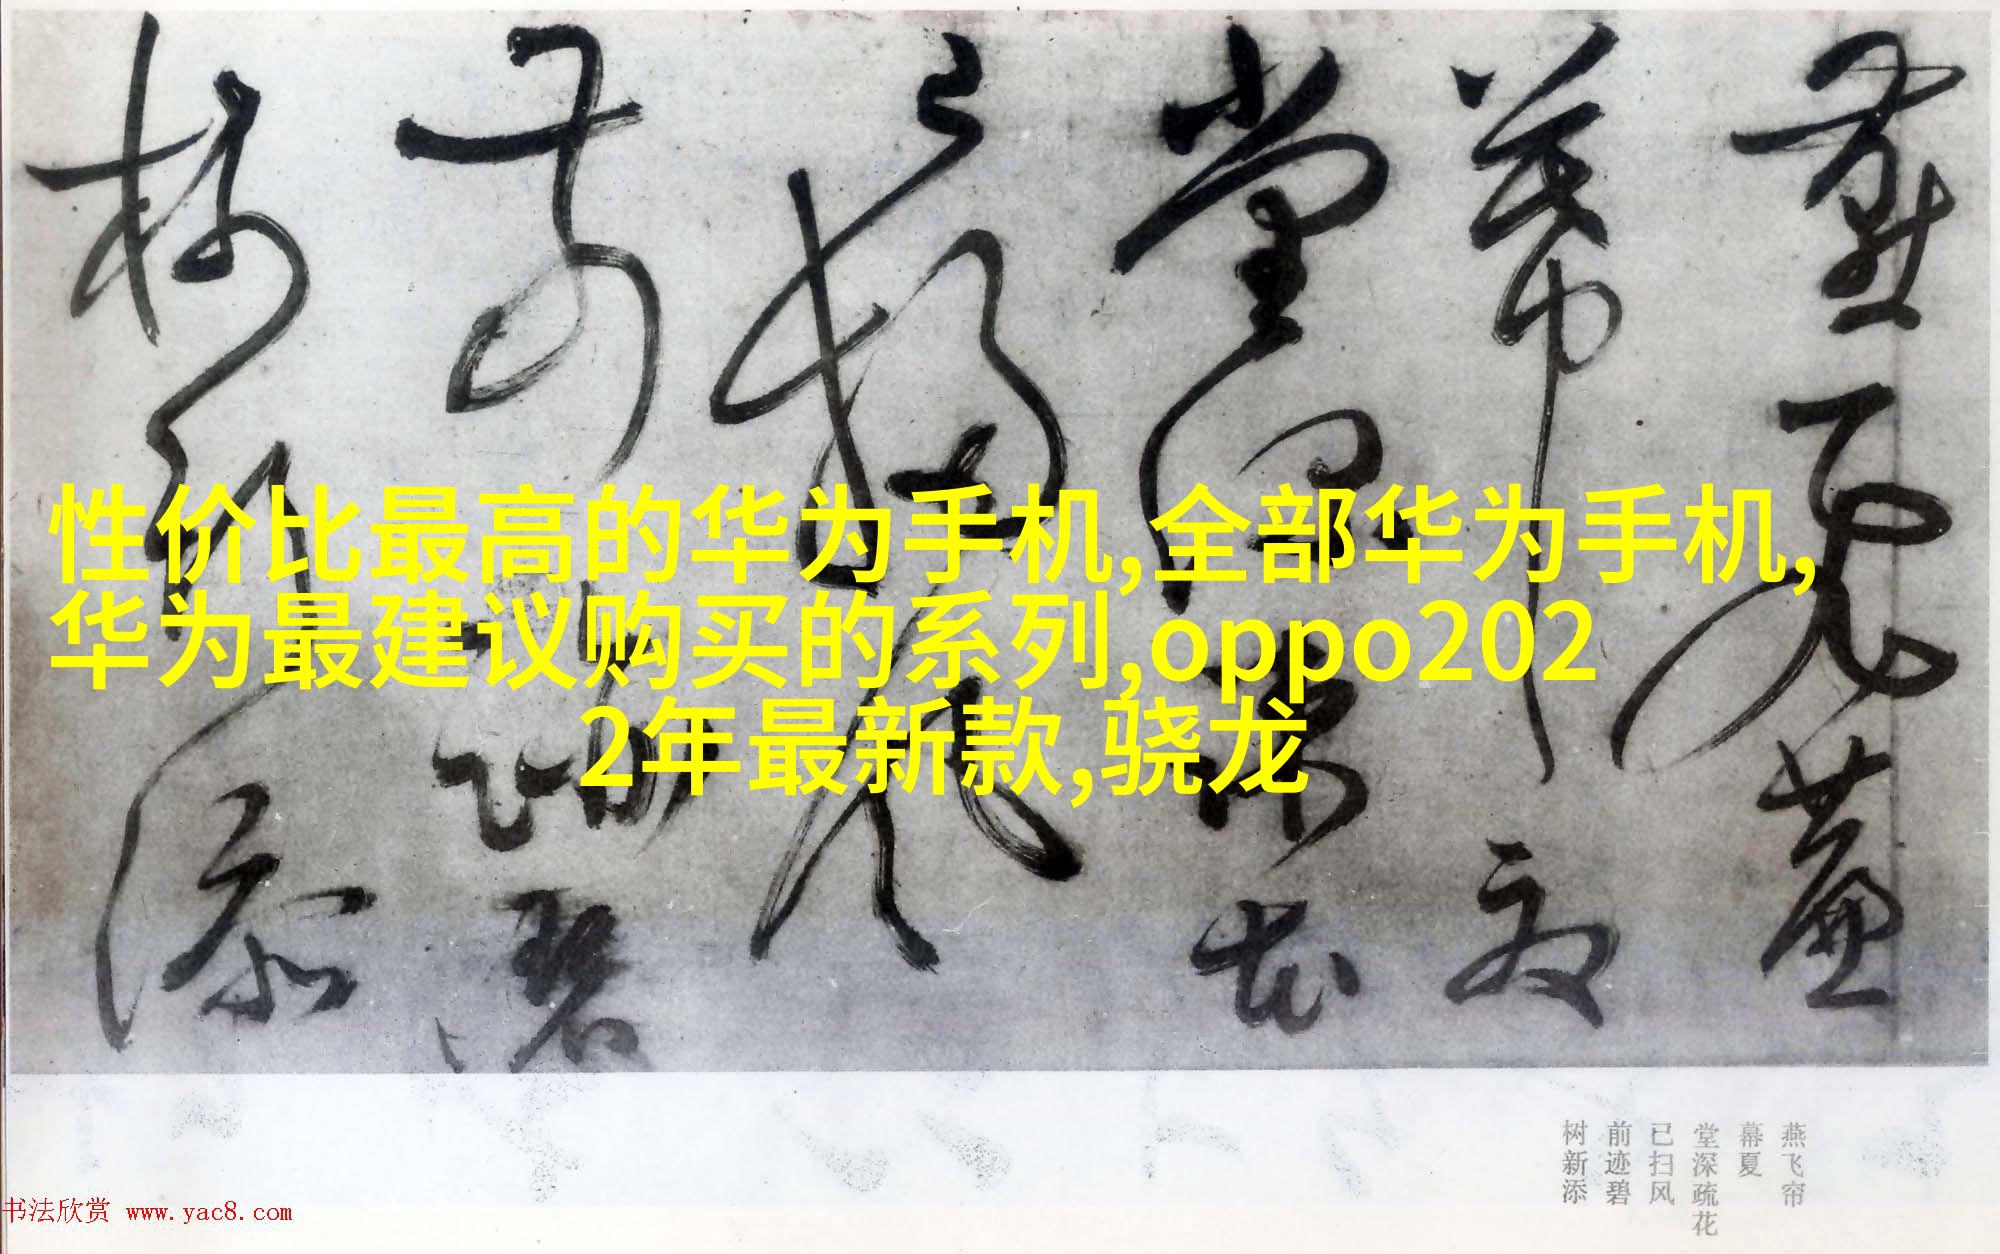 性价比最高的华为手机,全部华为手机,
华为最建议购买的系列,oppo202
2年最新款,骁龙
燕飞帘
幕夏
堂深疏花
已扫风
前迹碧
树新添
书法欣赏 www.yac8.com